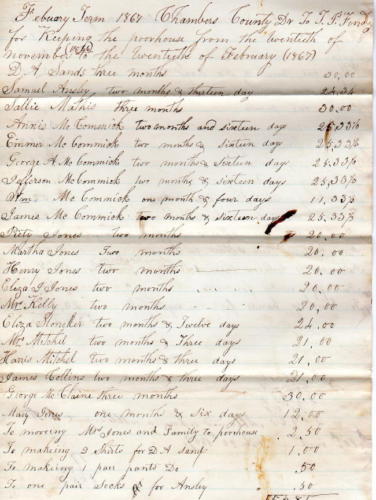 Febuary Term 1867 Chambers County Dr To T. P.
for Keeping the poorhouse from the twentieth of
november (1866) to the twentieth of February (1867)
D. A. Sands three months 30.00
Samuel Ansley, two months & thirteen day 24.34
Sallie Mathis three months 30.00
Annis McCommick two months and sixteen days 25,33⅓
Emmer McCommick two months & sixteen days 25,33⅓
George A McCommick two months & sixteen days 25,33⅓
Jefferson McCommick two months & sixteen days 25,33⅓
Wm McCommick one month & four days 11.33⅓
Jamie McCommick two months & sixteen days 25.33⅓
Jones two months 20.00
Martha Jones Two months 20.00
Henry Jones two months 20.00
Eliza J Jones two months 20.00
Mr Kelly two months 20.00
Eliza two months & Twelve days 24.00
Mr Mitchel two months & Three days 21.00
Haris Mitchel two months & three days 21,00
James Collins two months & three days 21.00
George McClaine three months 30.00
Mary Jones one month & six days 12.00
To moveing Mrs Jones and Family to poorhouse 2.50
To makeing 2 Shirts for D A Sands 1.00
To makeing 1 pair pants Do .50
To one pair Socks for Ansley .50